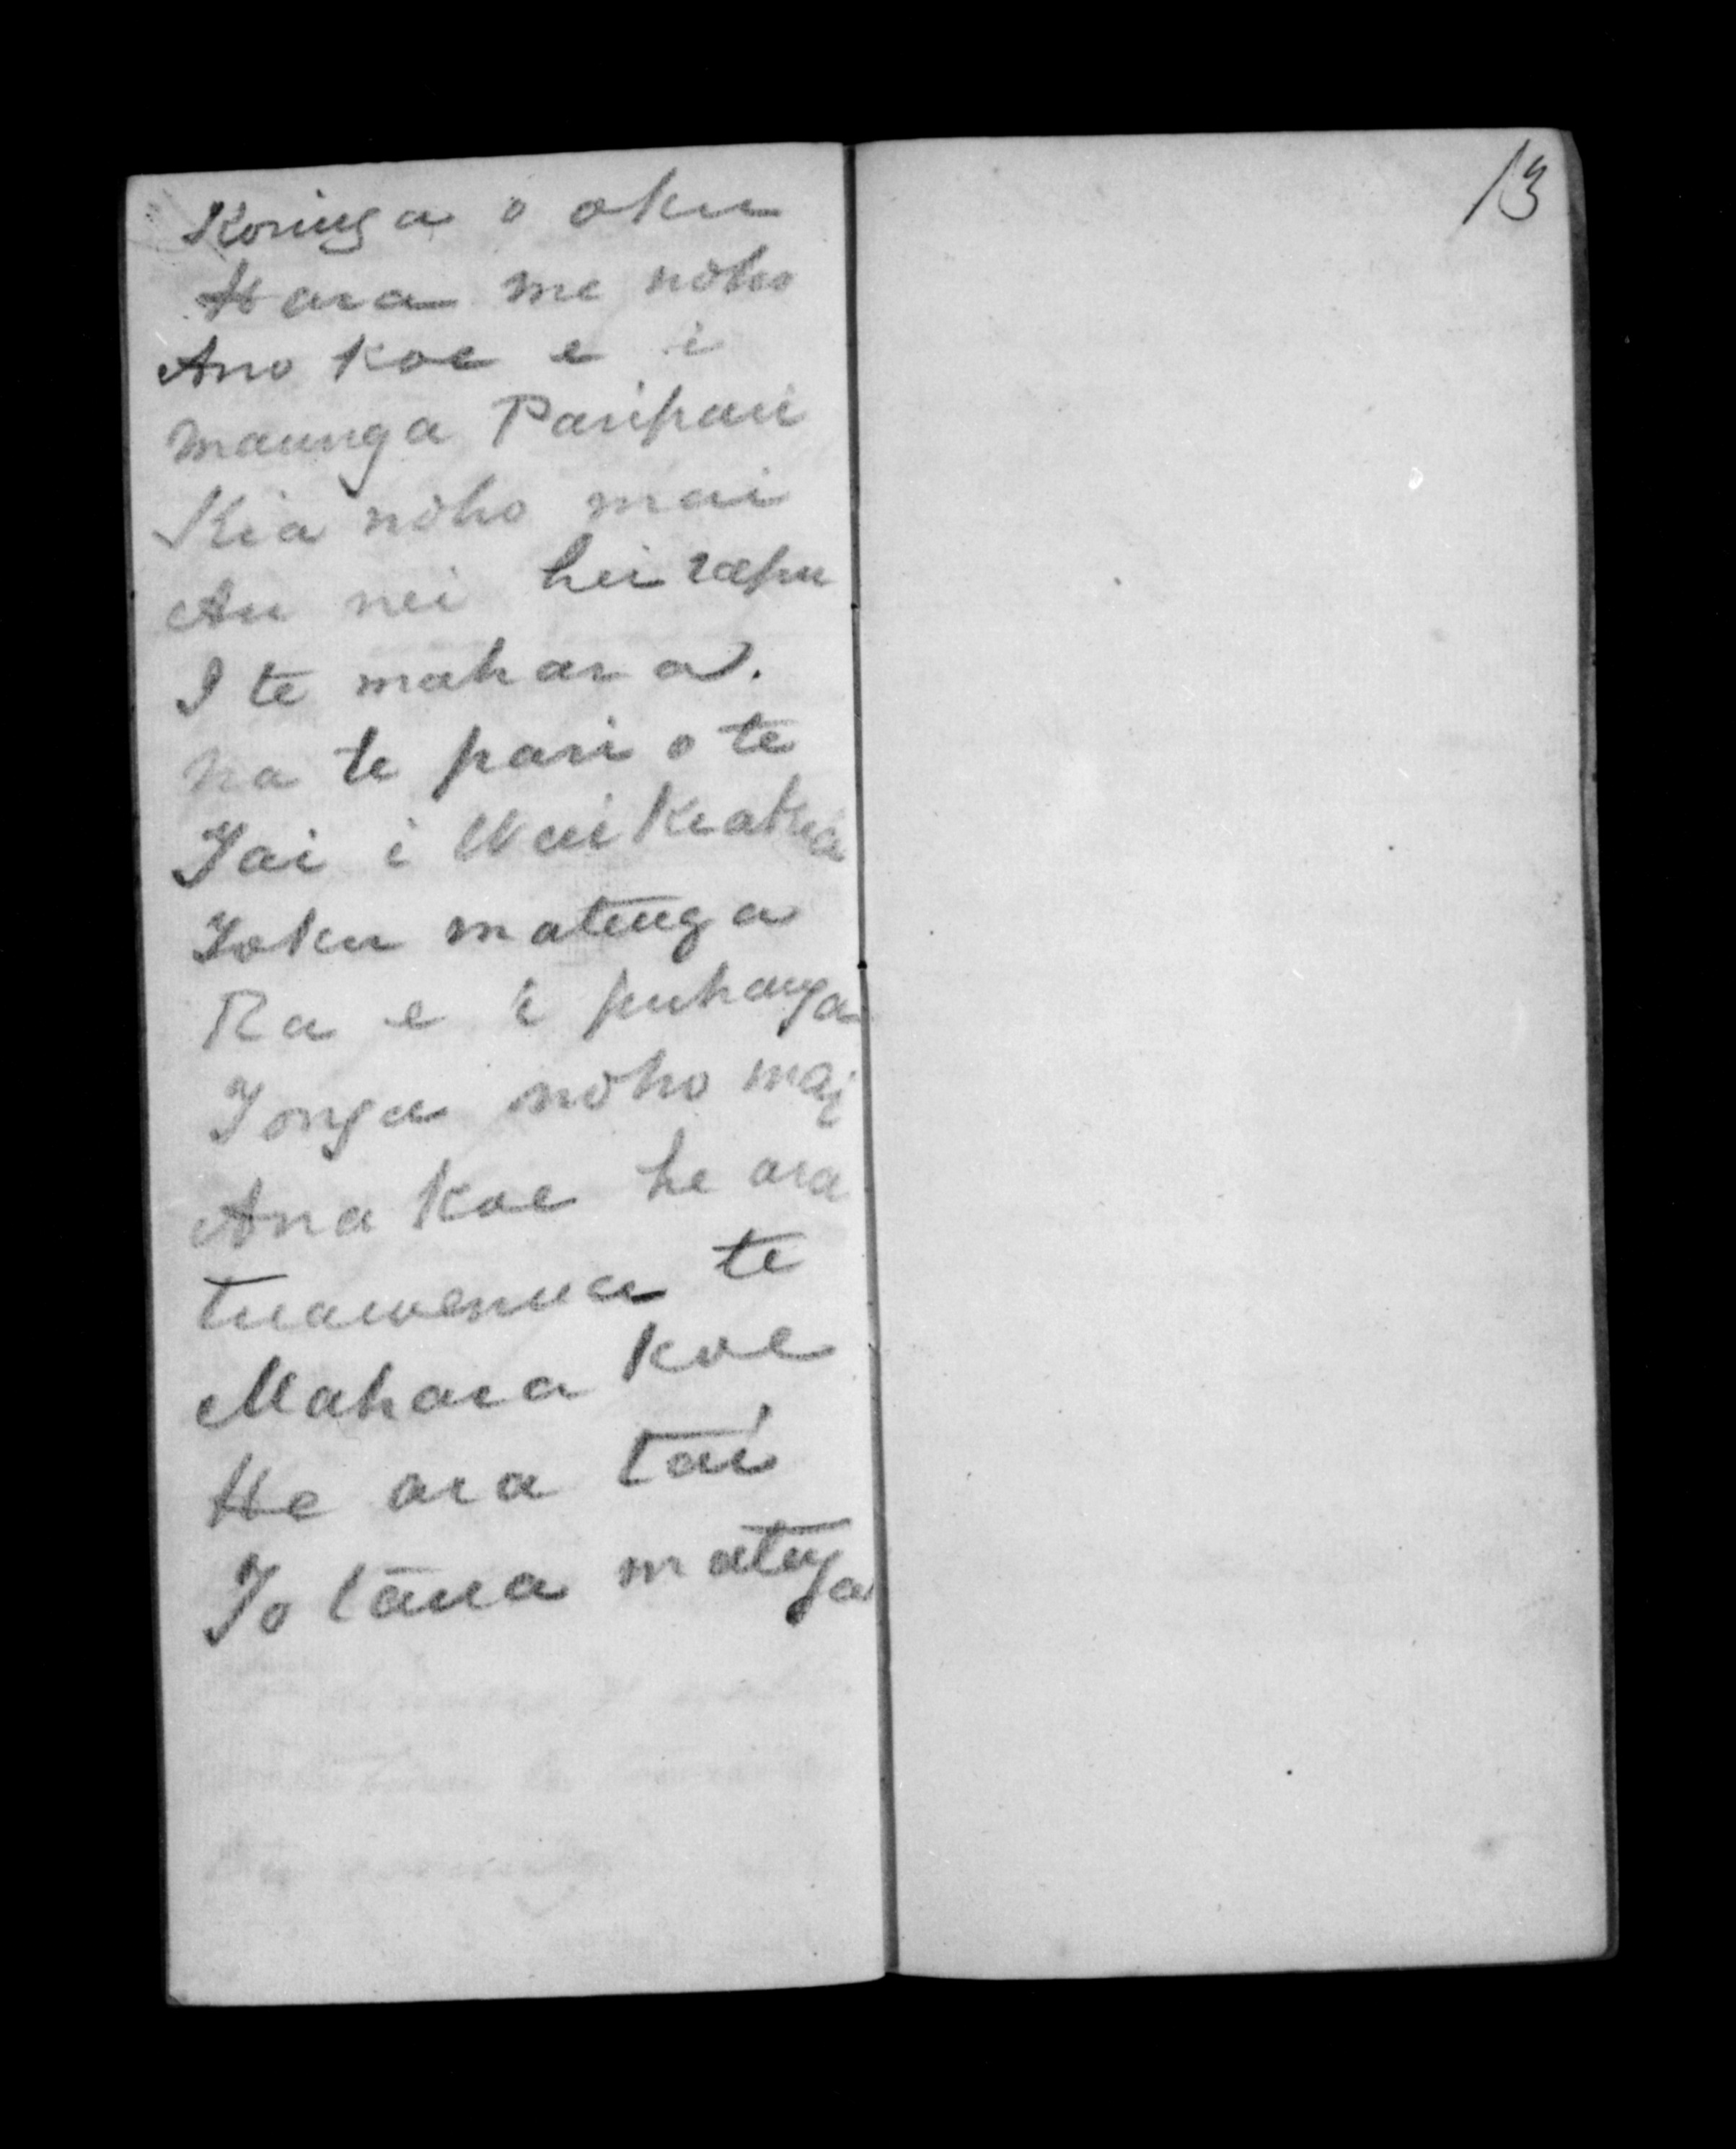 Koringa o oku
Hara me noho
Ano koe e i
maunga Paripari
Kia noho mai
Au nei hei rapu
I te mahara.
na te pari o te
Tai i Waikeakea
Toku matenga
Ra e i puhanga
Tonga noho mai
Ana koe he ara
tuawenua te
Mahara koe
He ara tai
To taua matenga
13